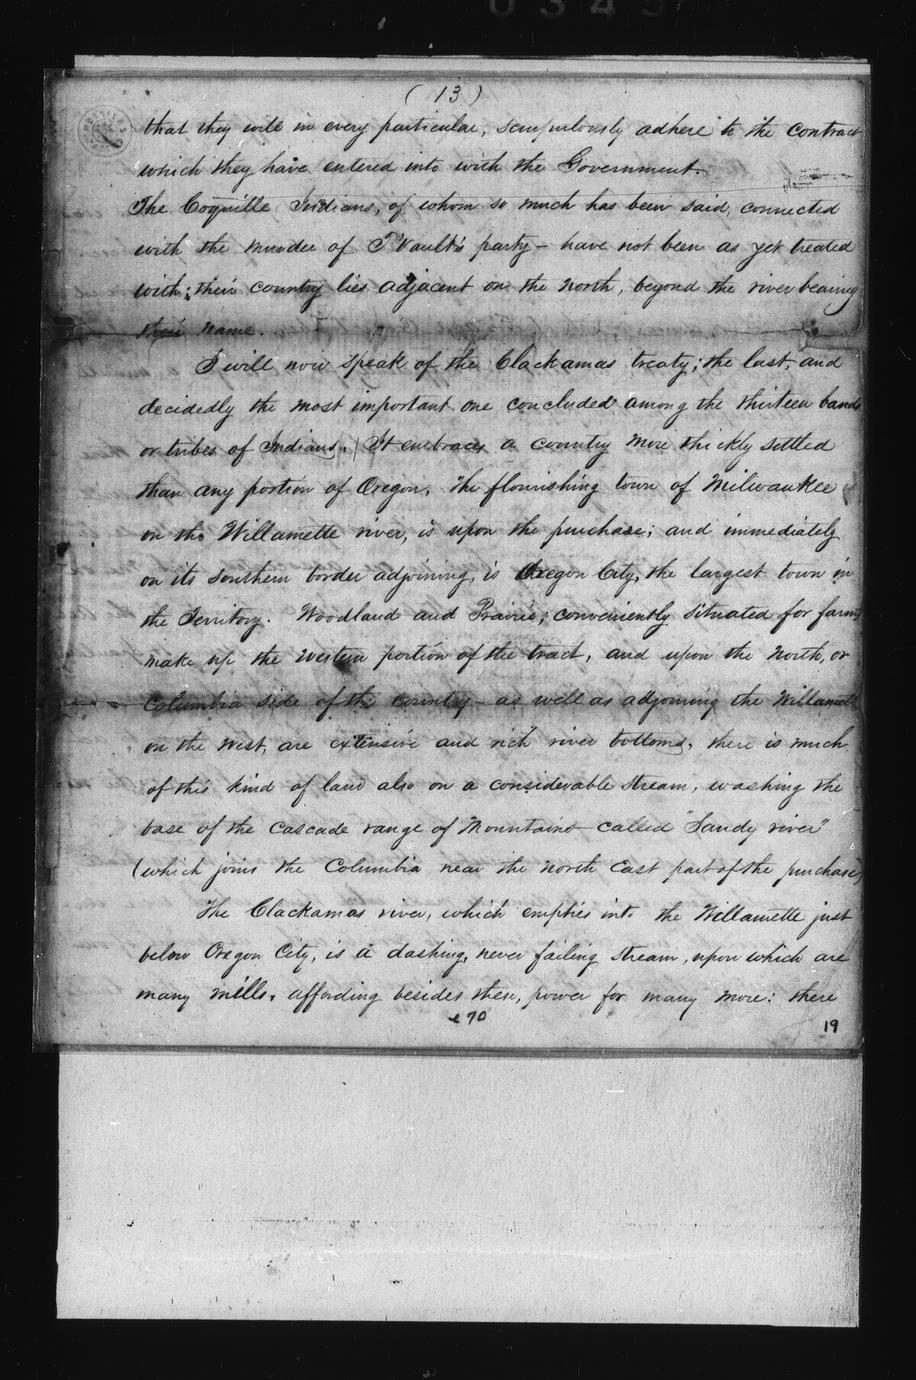 0345
(13)
that they will in every particular, scrupulously adhere to the contract
which they have entered into with the Government.
The Coquille Indians, of whom so much has been said, connected
with the murder of T'Vault's party – have not been as yet treated
with; their country lies adjacent on the North, beyond the river bearing
their name.
I will now speak of the Clackamas treaty; the last, and
decidedly the most important one concluded among the thirteen bands
or tribes of Indians. It embraces a country more thickly settled
than any portion of Oregon. The flourishing town of Milwaukee is
on the Willamette river, is upon the purchase; and immediately
on its southern border adjoining, is Oregon City, the largest town in
the Territory. Woodland and Prairie; conveniently situated for farms
make up the western portion of the tract, and upon the North, or
Columbia side of the country – as well as adjoining the Willamette
on the West, are extensive and rich river bottoms, there is much
of this kind of land also on a considerable stream, washing the
base of the Cascade range of Mountains called "Sandy river"
(which joins the Columbia near the North East part of the purchase)
The Clackamas river, which empties into the Willamette just
below Oregon City, is a dashing, never failing stream, upon which are
many mills, affording besides these, power for many more: there
19